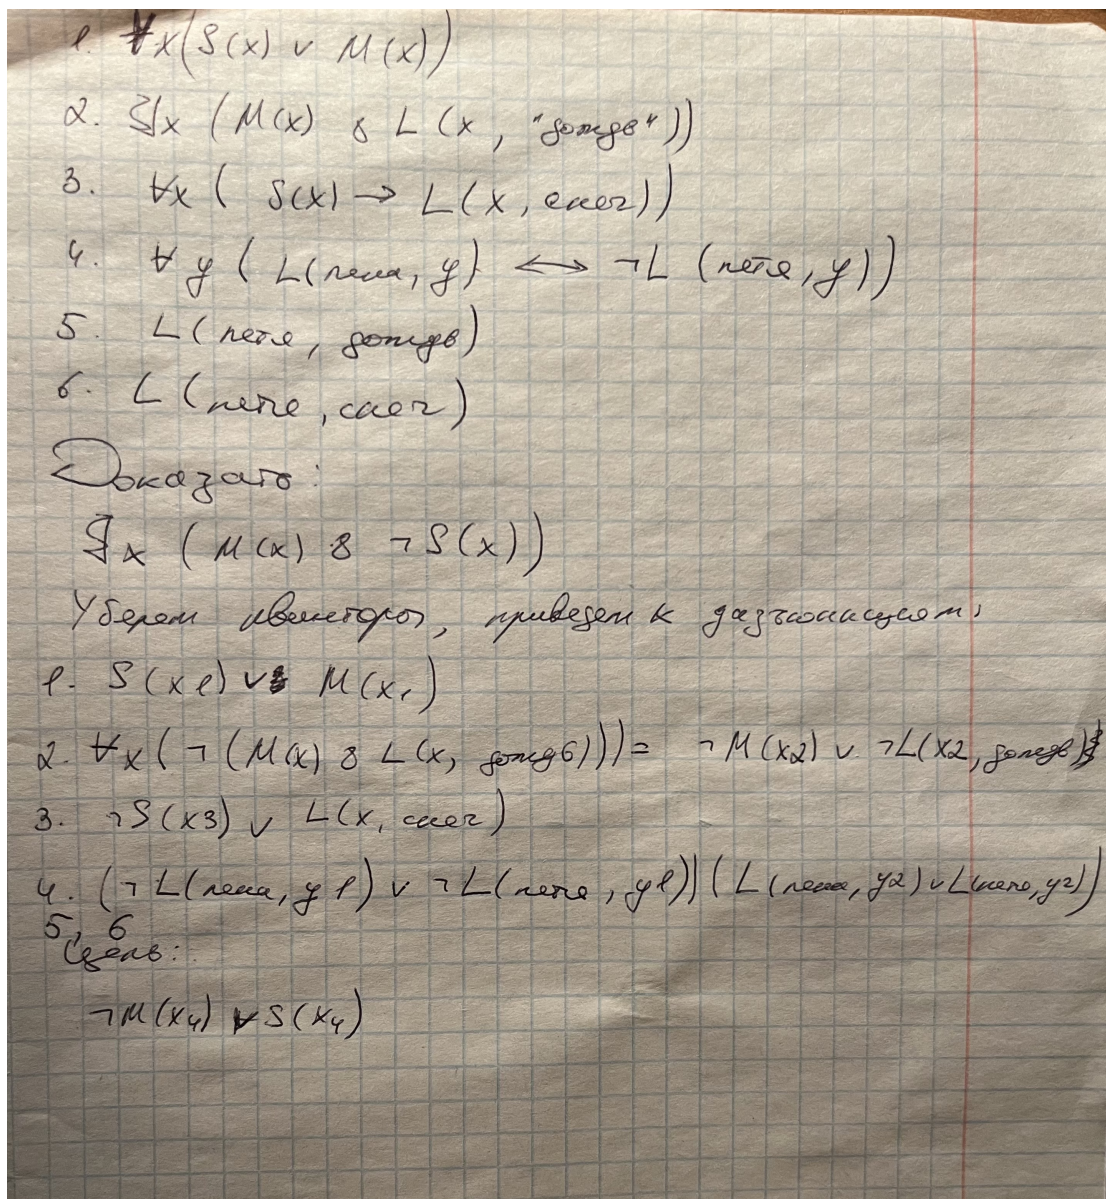 1. ∀x(S(x) ∨ M(x))
2. ∃x (M(x) & L(x, "дождь"))
3. ∀x ( S(x) → L(x, снег))
4. ∀y ( L(лена, y) ↔ ¬L (петя, y))
5. L(петя, дождь)
6. L(петя, снег)
Доказать:
∃x (M(x) & ¬S(x))
Уберем кванторы, приведем к дизъюнкциям:
1. S(x1) ∨ M(x1)
2. ∀x(¬(M(x) & L(x, дождь))) = ¬M(x2) ∨ ¬L(x2, дождь)
3. ¬S(x3) ∨ L(x, снег)
4. (¬L(лена, y1) ∨ ¬L(петя, y1)) (L(лена, y2) ∨ L(петя, y2))
5, 6
Цель:
¬M(x4) ∨ S(x4)